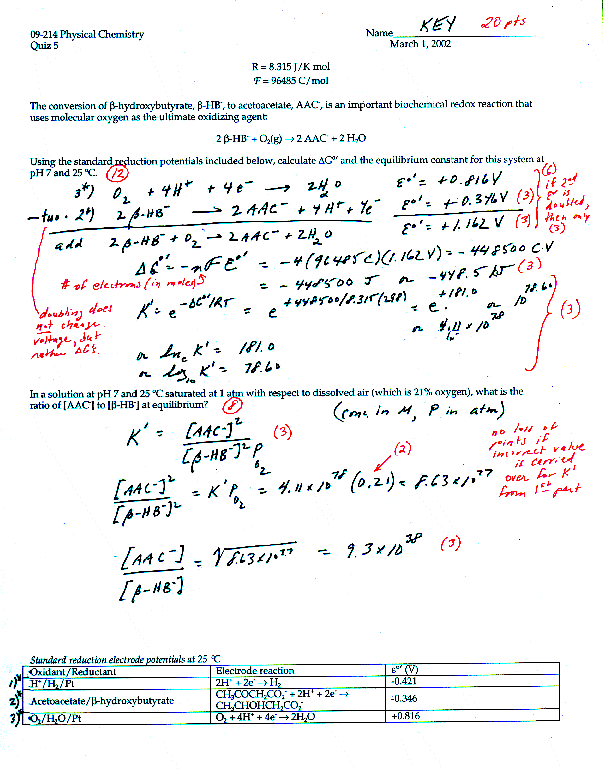 KEY 20 pts
09-214 Physical Chemistry Name
Quiz 5 March 1, 2002
R = 8.315 J/K mol
F = 96485 C/mol
The conversion of β-hydroxybutyrate, β-HB⁻, to acetoacetate, AAC⁻, is an important biochemical redox reaction that
uses molecular oxygen as the ultimate oxidizing agent:
2 β-HB⁻ + O₂(g) → 2 AAC⁻ + 2 H₂O
Using the standard reduction potentials included below, calculate ΔG°' and the equilibrium constant for this system at
pH 7 and 25 °C. (12)
3*) O₂ + 4H⁺ + 4e⁻ → 2H₂O ε°' = +0.816V
- two · 2*) 2 β-HB⁻ → 2 AAC⁻ + 4H⁺ + 4e⁻ ε°' = +0.346V (3)
add 2 β-HB⁻ + O₂ → 2AAC⁻ + 2H₂O ε°' = +1.162 V (3)
(6) if 2nd
ε° is
doubled,
then only
(3)
ΔG°' = -nFε°' = -4(96485C)(1.162V) = -448500 C·V
# of electrons (in moles) = -448500 J or -448.5 kJ (3)
doubling does
not change
voltage, but
rather ΔG's.
K' = e^(-ΔG°'/RT) = e^(+448500/8.315(298)) = e^(+181.0) or 10^(78.60)
or 4.11 × 10⁷⁸ (3)
or ln K' = 181.0
or log₁₀ K' = 78.60
In a solution at pH 7 and 25 °C saturated at 1 atm with respect to dissolved air (which is 21% oxygen), what is the
ratio of [AAC⁻] to [β-HB⁻] at equilibrium? (8)
(conc in M, P in atm)
K' = [AAC⁻]² / [β-HB⁻]² P_O₂ (3)
no loss of
points if
incorrect value
is carried
over for K'
from 1st part
[AAC⁻]² / [β-HB⁻]² = K'P_O₂ = 4.11×10⁷⁸ (0.21) = 8.63×10⁷⁷ (2)
[AAC⁻] / [β-HB⁻] = √8.63×10⁷⁷ = 9.3×10³⁸ (3)
Standard reduction electrode potentials at 25 °C
Oxidant/Reductant Electrode reaction ε°' (V)
1)* H⁺/H₂/Pt 2H⁺ + 2e⁻ → H₂ -0.421
2)* Acetoacetate/β-hydroxybutyrate CH₃COCH₂CO₂⁻ + 2H⁺ + 2e⁻ → -0.346
CH₃CHOHCH₂CO₂⁻
3)* O₂/H₂O/Pt O₂ + 4H⁺ + 4e⁻ → 2H₂O +0.816